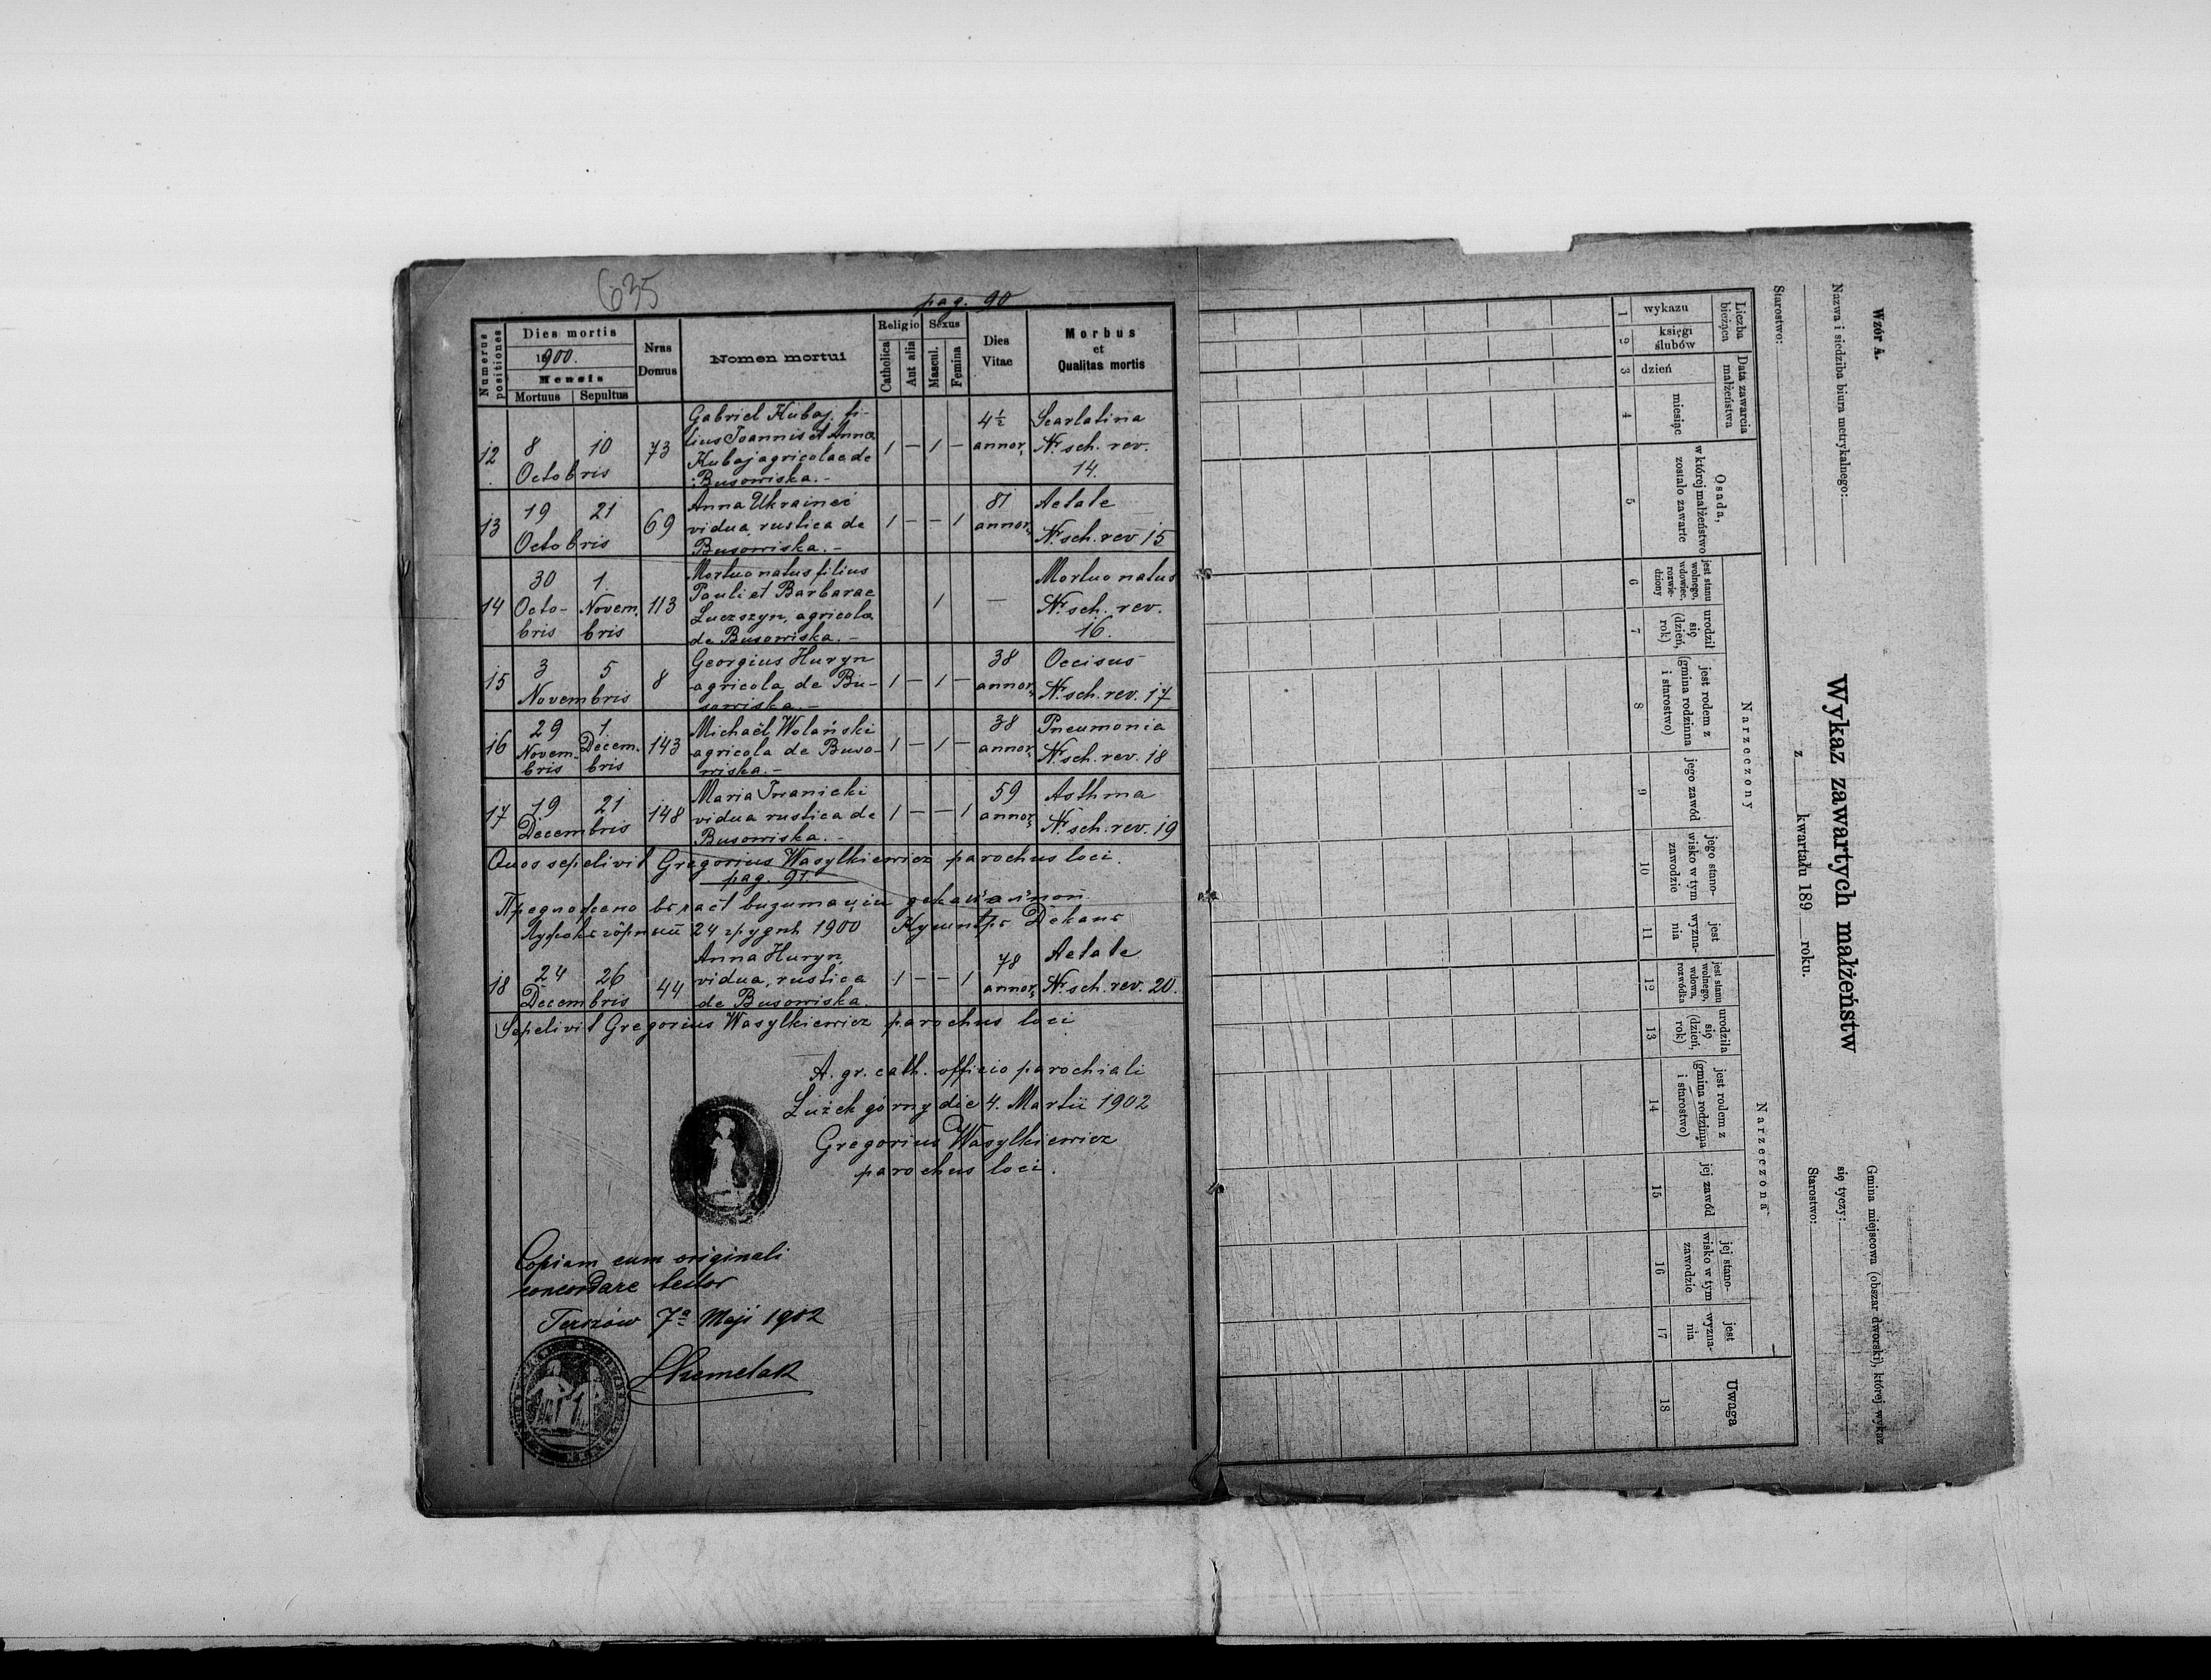 635
pag. 90
Numerus positiones
Dies mortis
1900.
Mensis
Mortuus Sepultus
Nrus Domus
Nomen mortui
Religio
Catholica
Aut alia
Sexus
Mascul.
Femina
Dies Vitae
Morbus
et
Qualitas mortis
12 8 10 Octobris 73
Gabriel Kubaj, fi-
lius Joannis et Anna
Kubaj agricolae de
Busowiska.-
1 – 1 –
4½ annor.
Scarlatina
Nr. sch. rev.
14.
13 19 21 Octobris 69
Anna Ukrainec
vidua, rustica de
Busowiska.-
1 – – 1
81 annor.
Aetate
Nr. sch. rev 15
14 30 Octo-bris 1. Novem.bris 113
Mortuo natus filius
Pauli et Barbarae
Luczszyn, agricola
de Busowiska.-
1
–
Mortuo natus
Nr. sch. rev.
16.
15 3 5 Novembris 8
Georgius Huryn
agricola de Bu-
sowiska.-
1 – 1 –
38 annor.
Occisus
Nr. sch. rev. 17
16 29 Novem-bris 1. Decem.bris 143
Michaël Wolański
agricola de Buso-
wiska.-
1 – 1 –
38 annor.
Pneumonia
Nr. sch. rev. 18
17 19 21 Decembris 148
Maria Iwanicki
vidua rustica de
Busowiska.-
1 – – 1
59 annor.
Asthma
Nr. sch. rev. 19
Quos sepelivit Gregorius Wasylkiewicz parochus loci.
pag. 91.
24 1900
18 24 26 Decembris 44
Anna Huryn,
vidua, rustica
de Busowiska.
1 – – 1
78 annor.
Aetate
Nr. sch. rev. 20.
Sepelivit Gregorius Wasylkiewicz parochus loci
A. gr. cath. officio parochiali
Łużek górny die 4. Martii 1902
Gregorius Wasylkiewicz
parochus loci.
Copiam cum originali
concordare testor
Terszów 7ª Maji 1902
Wzór A.
Nazwa i siedziba biura metrykalnego:
Starostwo:
Wykaz zawartych małżeństw
z kwartału 189 roku.
Gmina miejscowa (obszar dworski), której wykaz
się tyczy:
Starostwo:
Liczba bieżąca
wykazu
księgi ślubów
Data zawarcia małżeństwa
dzień
miesiąc
Osada,
w której małżeństwo
zostało zawarte
Narzeczony
jest stanu wolnego, wdowiec, rozwie-dziony
urodził się (dzień, rok)
jest rodem z (gmina rodzinna i starostwo)
jego zawód
jego stano-wisko w tym zawodzie
jest wyzna-nia
Narzeczona
jest stanu wolnego, wdowa, rozwódka
urodziła się (dzień, rok)
jest rodem z (gmina rodzinna i starostwo)
jej zawód
jej stano-wisko w tym zawodzie
jest wyzna-nia
Uwaga
1 2 3 4 5 6 7 8 9 10 11 12 13 14 15 16 17 18